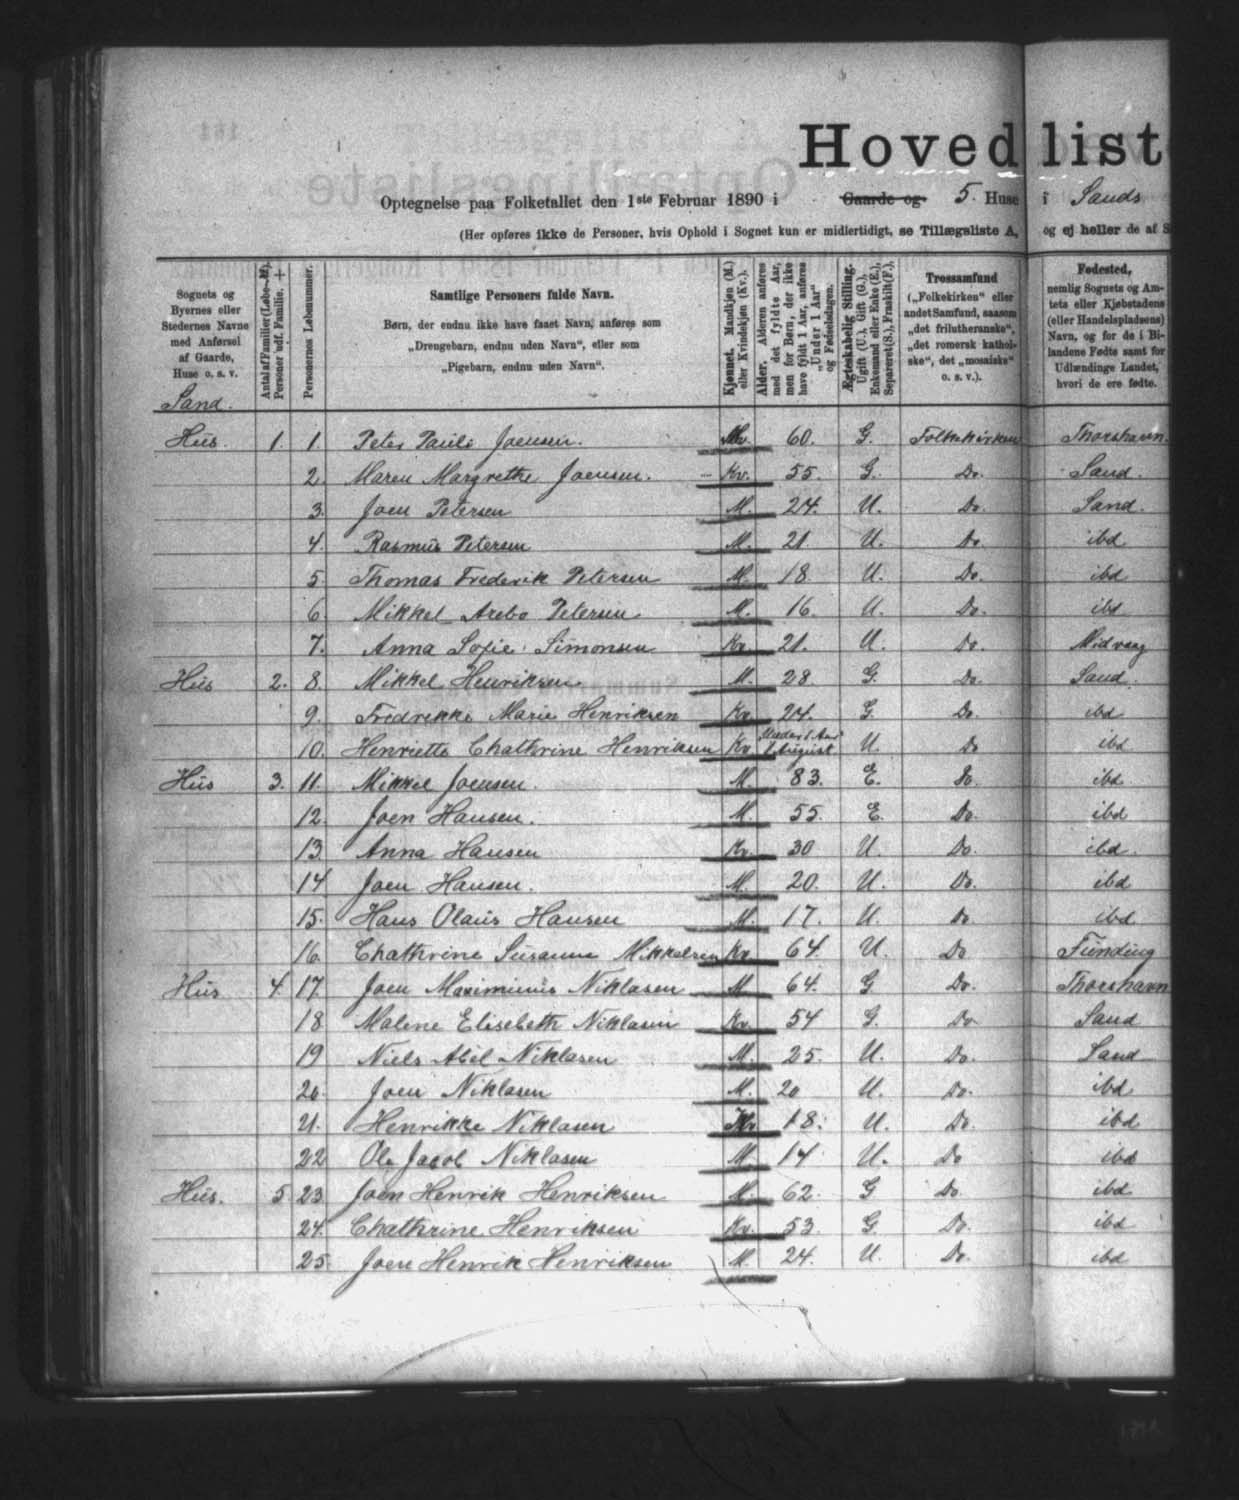 Hovedlist
Optegnelse paa Folketallet den 1ste Februar 1890 i Gaarde og 5. Huse i Sands
(Her opføres ikke de Personer, hvis Ophold i Sognet kun er midlertidigt, se Tillægsliste A, og ej heller de af S
Sognets og Byernes eller Stedernes Navne med Anførsel af Gaarde, Huse o. s. v.
Antal af Familier (Løbe-№). Personer udf. Familie.
Personernes Løbenummer.
Samtlige Personers fulde Navn.
Børn, der endnu ikke have faaet Navn, anføres som
„Drengebarn, endnu uden Navn“, eller som
„Pigebarn, endnu uden Navn“.
Kjønnet. Mandkjøn (M.) eller Kvindekjøn (Kv.).
Alder. Alderen anføres med det fyldte Aar, men for Børn, der ikke have fyldt 1 Aar, anføres „Under 1 Aar“ og Fødselsdagen.
Ægteskabelig Stilling. Ugift (U.), Gift (G.), Enkemand eller Enke (E.), Separeret (S.), Fraskilt (F.).
Trossamfund („Folkekirken“ eller andet Samfund, saasom „det frilutheranske“, „det romersk katholske“, det „mosaiske“ o. s. v.).
Fødested, nemlig Sognets og Amtets eller Kjøbstadens (eller Handelspladsens) Navn, og for de i Bilandene Fødte samt for Udlændinge Landet, hvori de ere fødte.
Sand.
Hus. 1. 1. Peter Pauli Joensen. M. 60. G. Folkekirken Thorshavn.
2. Maren Margrethe Joensen. Kv. 55. G. Do. Sand.
3. Joen Petersen M. 24. U. Do. Sand.
4. Rasmus Petersen M. 21 U. Do. ibd
5. Thomas Frederik Petersen M. 18. U. Do. ibd
6. Mikkel Arebo Petersen M. 16. U. Do. ibd
7. Anna Sofie Simonsen Kv. 21. U. Do. Midvaag
Hus 2. 8. Mikkel Henriksen M. 28 G. Do. Sand.
9. Fredrikke Marie Henriksen Kv. 24. G. Do. ibd
10. Henriette Chathrine Henriksen Kv Under 1 Aar August U. Do ibd
Hus 3. 11. Mikkel Joensen. M. 83. E. Do. ibd
12. Joen Hansen. M. 55. E. Do. ibd
13. Anna Hansen Kv. 30 U. Do. ibd.
14 Joen Hansen. M. 20. U. Do. ibd
15. Hans Olaus Hansen M. 17. U. Do. ibd
16. Chathrine Susanne Mikkelsen Kv. 64. U. Do Funding
Hus 4. 17. Joen Maximinus Niklasen M 64. G Do. Thorshavn
18 Malene Elisebeth Niklasen Kv. 54 G. Do Sand
19 Niels Abel Niklasen M. 25. U. Do. Sand
20. Joen Niklasen M. 20 U. Do. ibd
21. Henrikke Niklasen Kv 18. U. Do. ibd
22 Ole Jacob Niklasen M. 14 U. Do ibd
Hus. 5 23. Joen Henrik Henriksen M. 62. G Do. ibd
24. Chathrine Henriksen Kv. 53. G. Do. ibd
25. Joen Henrik Henriksen M. 24. U. Do. ibd